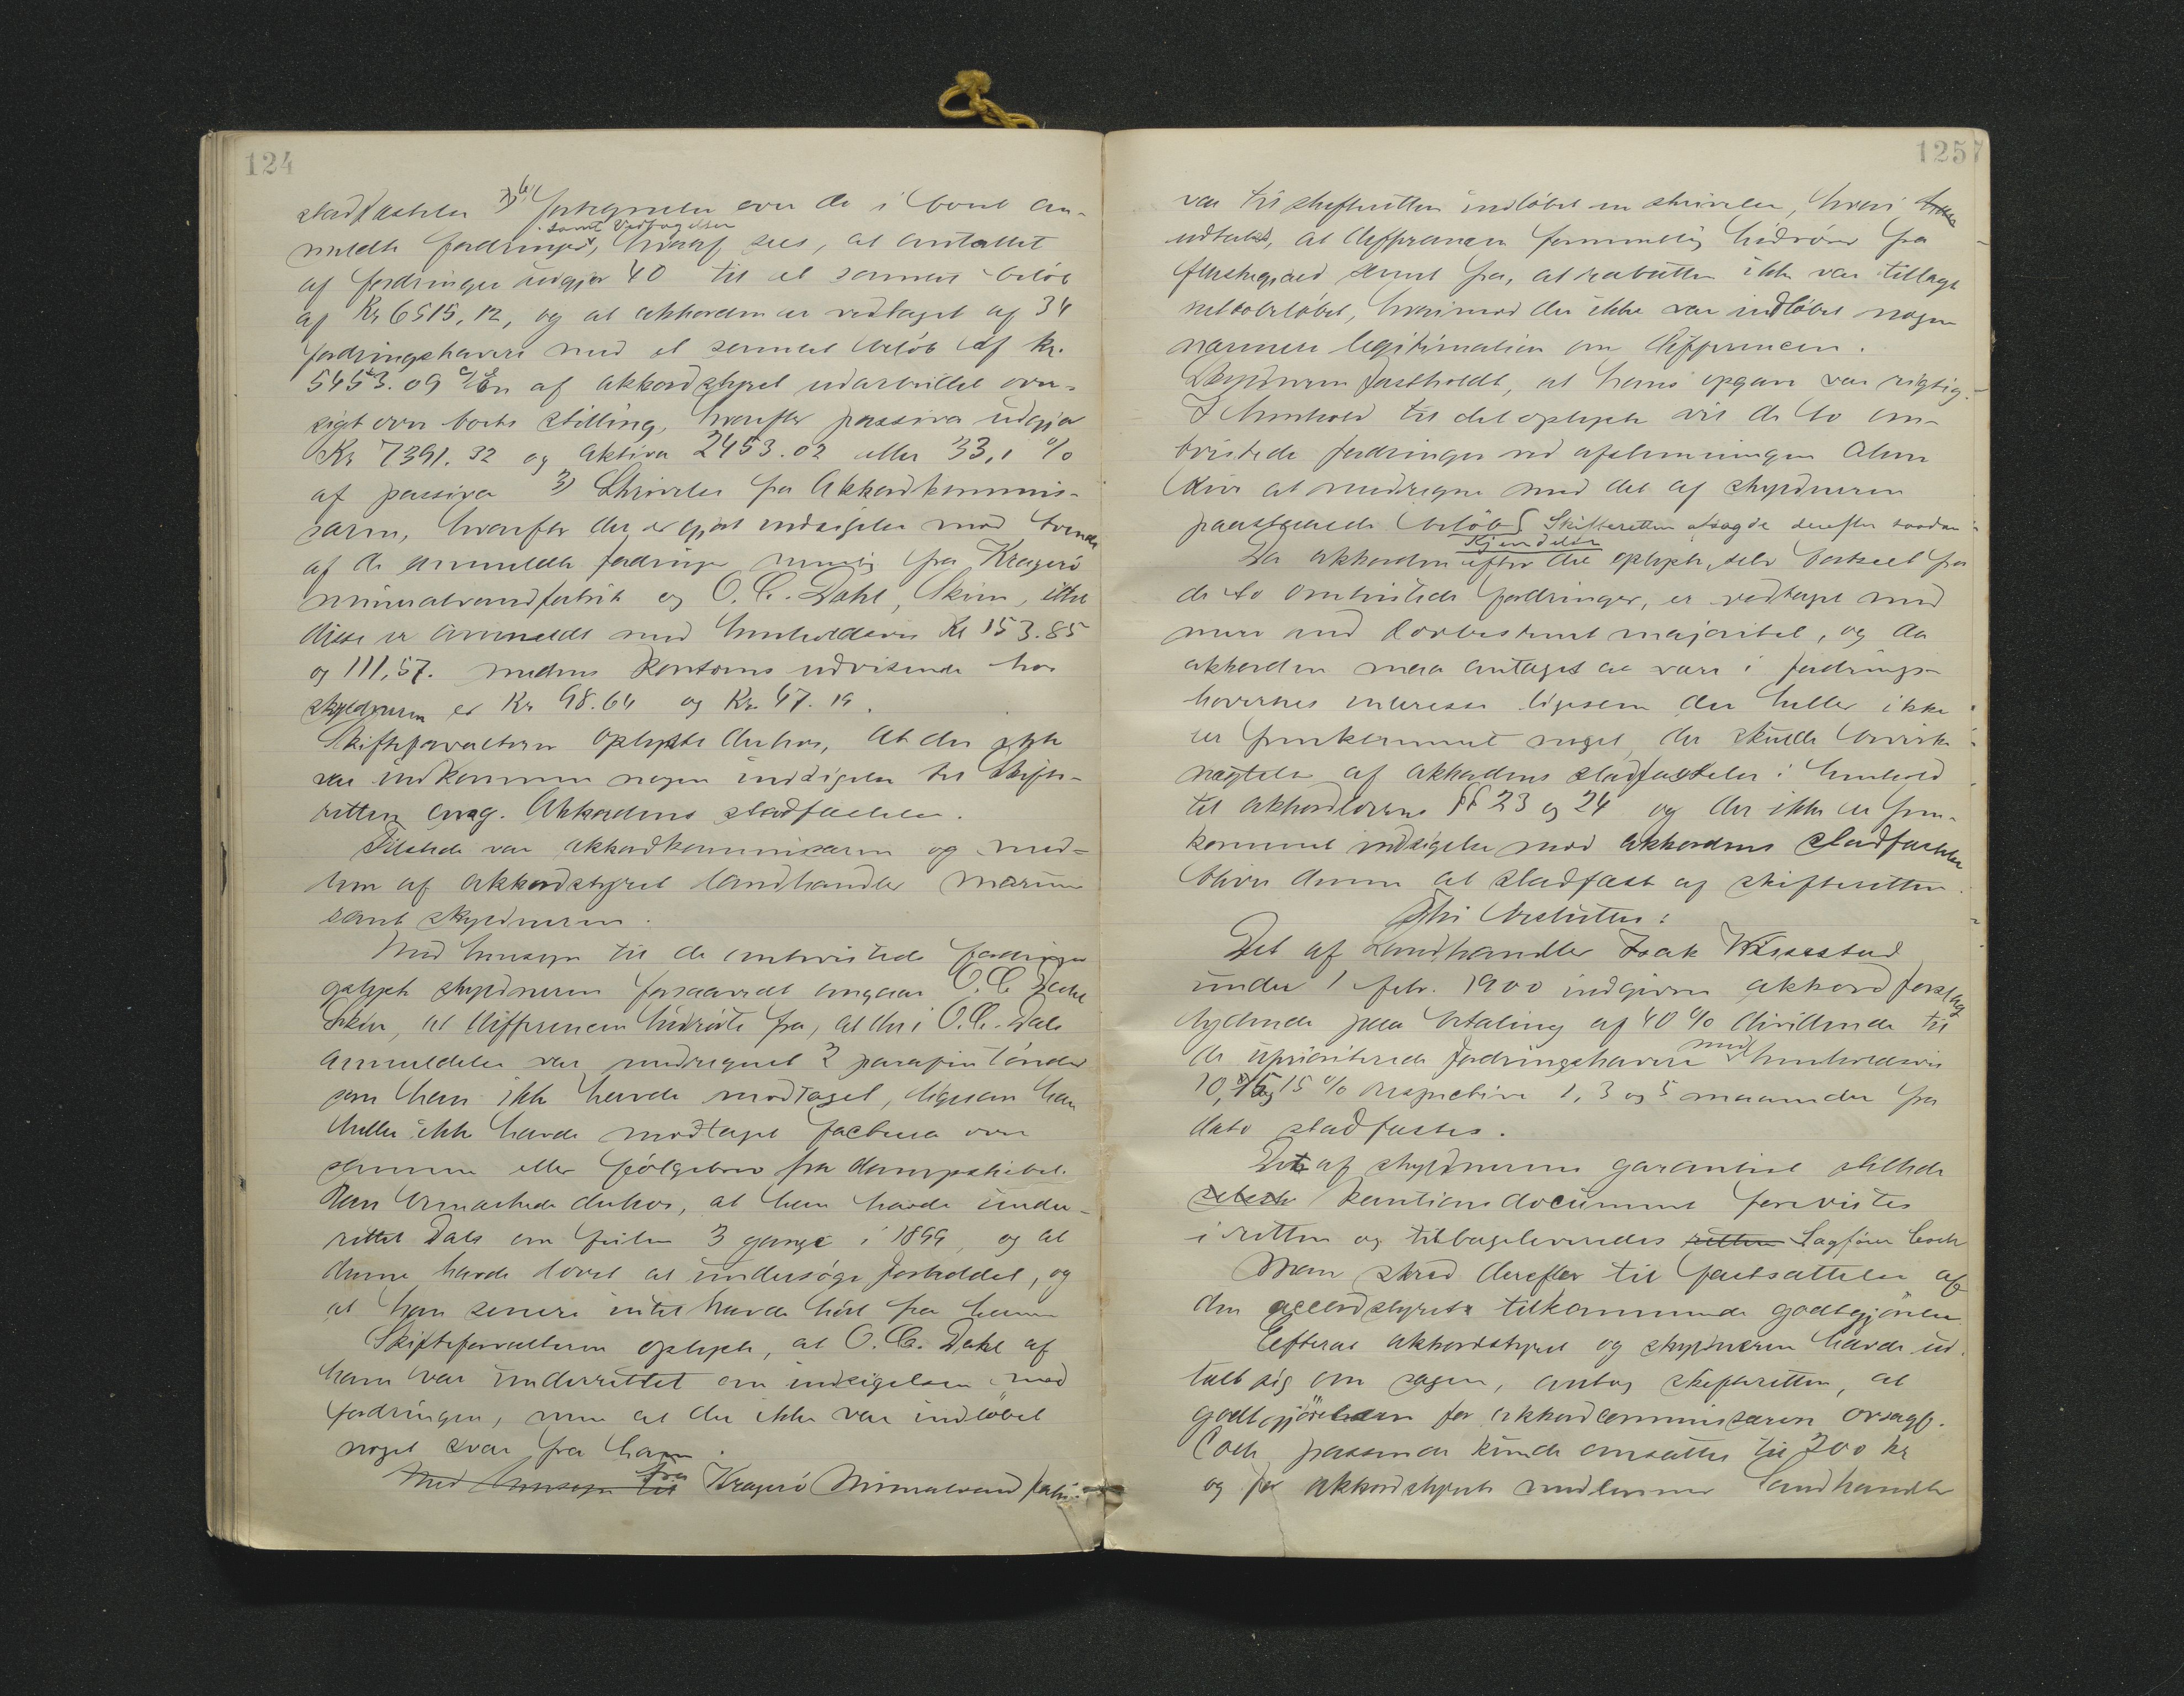 124
stadfæstelse 3) b) fortegnelse over de i boet an-
samt Vedtagelser
meldte fordringer, hvoraf sees, at antallet
af fordringer udgjør 40 til et samlet beløb
af Kr 6515,12, og at akkorden er vedtaget af 34
fordringshavere med et samlet beløb af kr.
5453.09 c) En af akkordstyret udarbeidet over-
sigt over boets stilling, hvorefter passiva udgjør
Kr 7391.32 og aktiva 2453.02 eller 33,1 %
af passiva 3) Skrivelse fra Akkordkommis-
særen, hvorefter der er gjort indsigelse mod tvende
af de anmeldte fordringer nemlig fra Kragerø
mineralvandfabrik og O. C. Dahl, Skien, idet
disse er anmeldt med henholdsvis Kr 153.85
og 111,57. medens kontoens udvisende hos
skyldneren er Kr 98.64 og Kr. 47.19.
Skifteforvalteren oplyste derhos, at der ikke
var indkommen nogen indsigelse til Skifte-
retten ang. Akkordens stadfæstelse.
Tilstede var akkordkommissæren og med-
lem af akkordstyret landhandler
samt skyldneren.
Med hensyn til de omtvistede fordringer
oplyste skyldneren forsaavidt angaar O. C. Dahl
Skien, at differencen hidrørte fra, at der i O. C. Dals
anmeldelse var medregnet 2 parafin tønder
som han ikke havde modtaget, ligesom han
heller ikke havde modtaget factura over
samme eller følgebrev fra dampskibet.
Han bemærkede derhos, at han havde under-
rettet Dals om feilen 3 gange i 1899, og at
denne havde lovet at undersøge forholdet, og
at han senere intet havde hørt fra ham
Skifteforvalteren oplyste, at O. C. Dahl af
ham var underrettet om indsigelsen mod
fordringen, men at der ikke var indløbet
noget svar fra ham.
Med hensyn til fra Kragerø Mineralvandfabri-
1257
var til skifteretten indløbet en skrivelse, hvori
udtales, at differencen formentlig hidrører fra
flaskegjæld samt fra, at rabatten ikke var tillagt
nettobeløbet, hvorimod der ikke var indløbet nogen
nærmere legitimation om differencen.
Skyldneren fastholdt, at hans opgave var rigtig.
I Henhold til det oplyste vil de to om-
tvistede fordringer ved afstemningen alene
blive at medregne med det af skyldneren
paastaaede beløb. Skifteretten afsagde derefter saadan
Kjendelse
Da akkorden efter det oplyste, selv bortseet fra
de to omtvistede fordringer, er vedtaget med
mere end lovbestemt majoritet, og da
akkorden maa antages at være i fordrings-
havernes interesse ligesom der heller ikke
er fremkommet noget, der skulde bevirke
nægtelse af akkordens stadfæstelse i henhold
til akkordlovens §§ 23 og 24 og der ikke er frem-
kommet indsigelse mod akkordens stadfæstelse
bliver denne at stadfæste af skifteretten.
Thi besluttes:
Det af Landhandler Isak
under 1 febr. 1900 indgivne akkordforslag
lydende paa betaling af 40 % dividende til
de uprioriterede fordringshavere med henholdsvis
10, 15 og 15 % respective 1, 3 og 5 maaneder fra
dato stadfæstes.
Det af skyldnerens garantist stillede
kautionsdocument forevistes
i retten og tilbageleveredes retten Sagfører Coch
Man skred derefter til fastsættelse af
den accordstyret tilkommende godtgjørelse.
Efterat akkordstyret og skyldneren havde ud-
talt sig om sagen, antog skifteretten, at
godtgjørelsen for akkordcommissæren orsagf.
Coch passende kunde ansættes til 200 kr
og for akkordstyrets medlemmer Landhandler